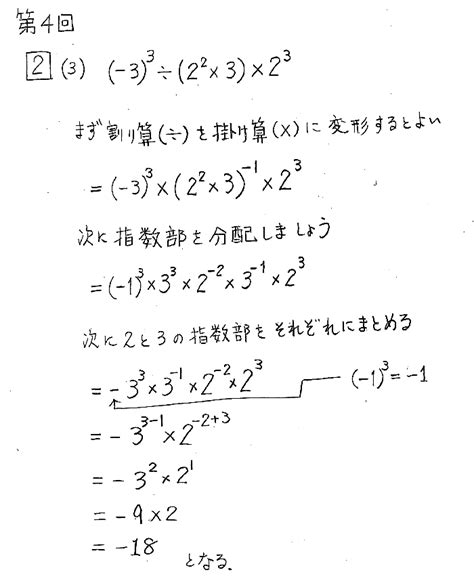 第4回
2 (3) (-3)³÷(2²×3)×2³
まず割り算(÷)を掛け算(×)に変形するとよい
=(-3)³×(2²×3)⁻¹×2³
次に指数部を分配しましょう
=(-1)³×3³×2⁻²×3⁻¹×2³
次に2と3の指数部をそれぞれにまとめる
=-3³×3⁻¹×2⁻²×2³ (-1)³=-1
=-3³⁻¹×2⁻²⁺³
=-3²×2¹
=-9×2
=-18 となる.